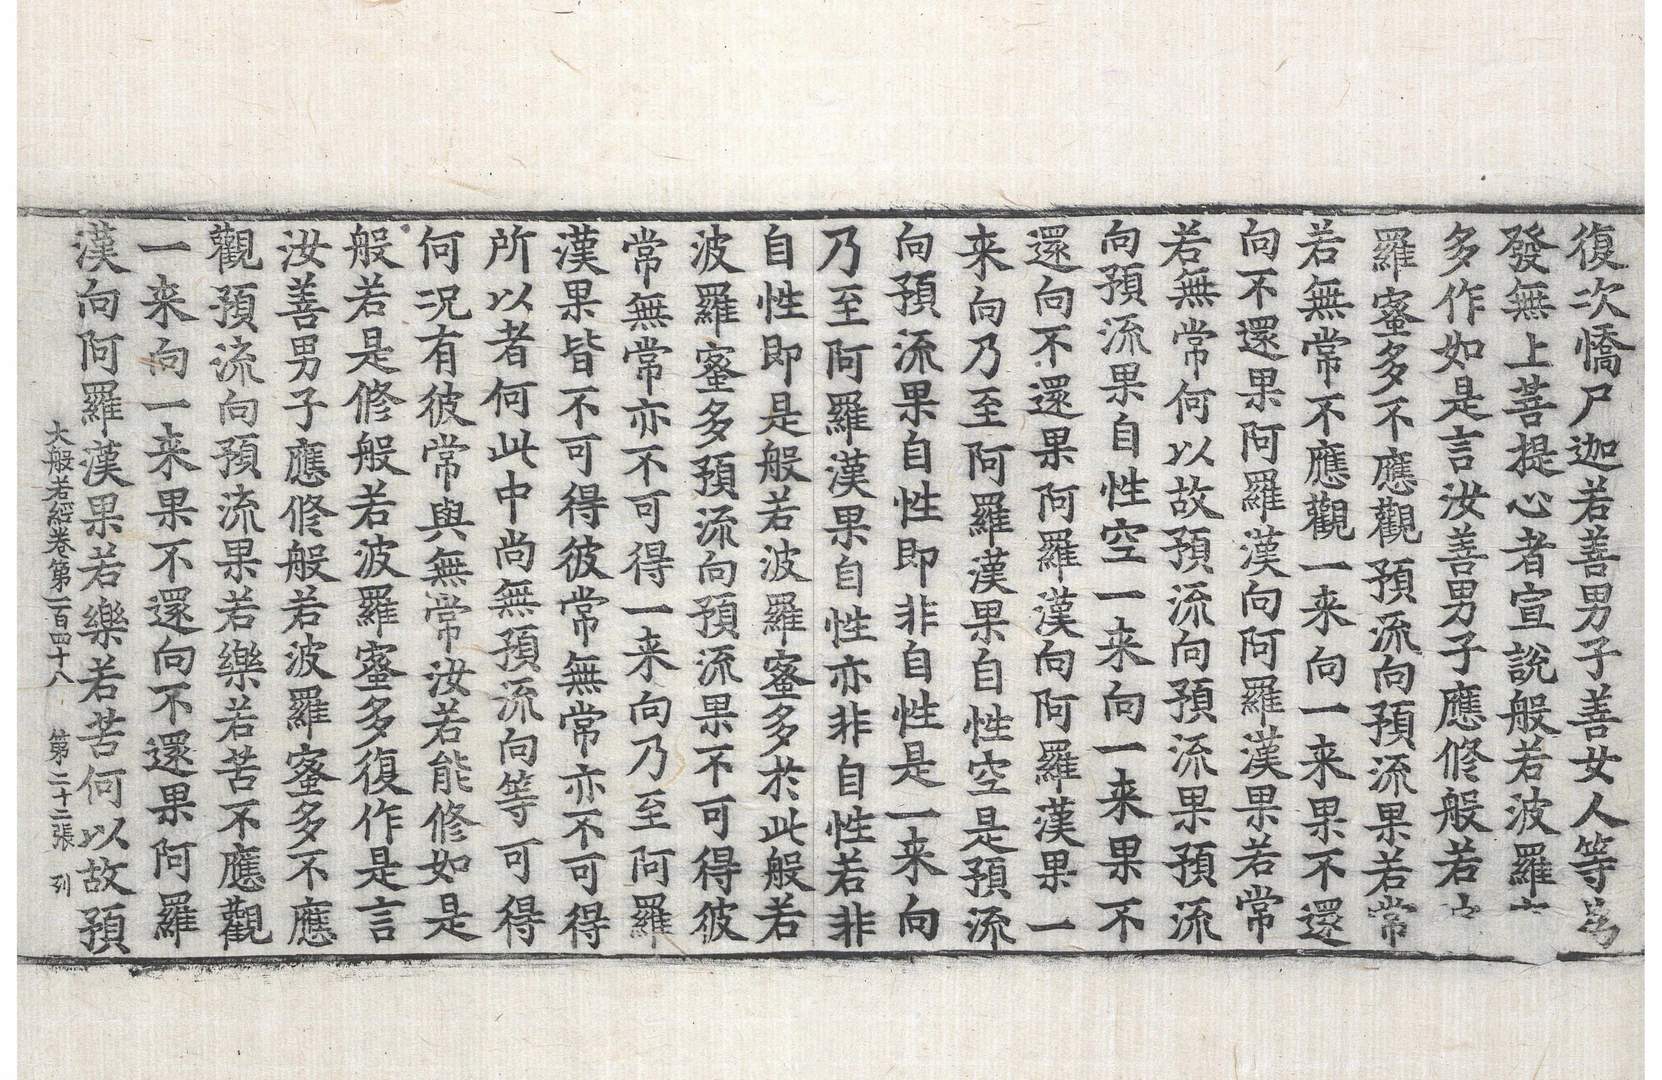 復次憍尸迦若善男子善女人等為
發無上菩提心者宣說般若波羅
多作如是言汝善男子應修般若
羅蜜多不應觀預流向預流果若常
若無常不應觀一来向一来果不還
向不還果阿羅漢向阿羅漢果若常
若無常何以故預流向預流果預流
向預流果自性空一来向一来果不
還向不還果阿羅漢向阿羅漢果一
来向乃至阿羅漢果自性空是預流
向預流果自性即非自性是一来向
乃至阿羅漢果自性亦非自性若非
自性即是般若波羅蜜多於此般若
波羅蜜多預流向預流果不可得彼
常無常亦不可得一来向乃至阿羅
漢果皆不可得彼常無常亦不可得
所以者何此中尚無預流向等可得
何况有彼常與無常汝若能修如是
般若是修般若波羅蜜多復作是言
汝善男子應修般若波羅蜜多不應
觀預流向預流果若樂若苦不應觀
一来向一来果不還向不還果阿羅
漢向阿羅漢果若樂若苦何以故預
大般若經卷第一百四十八 第二十二張 列